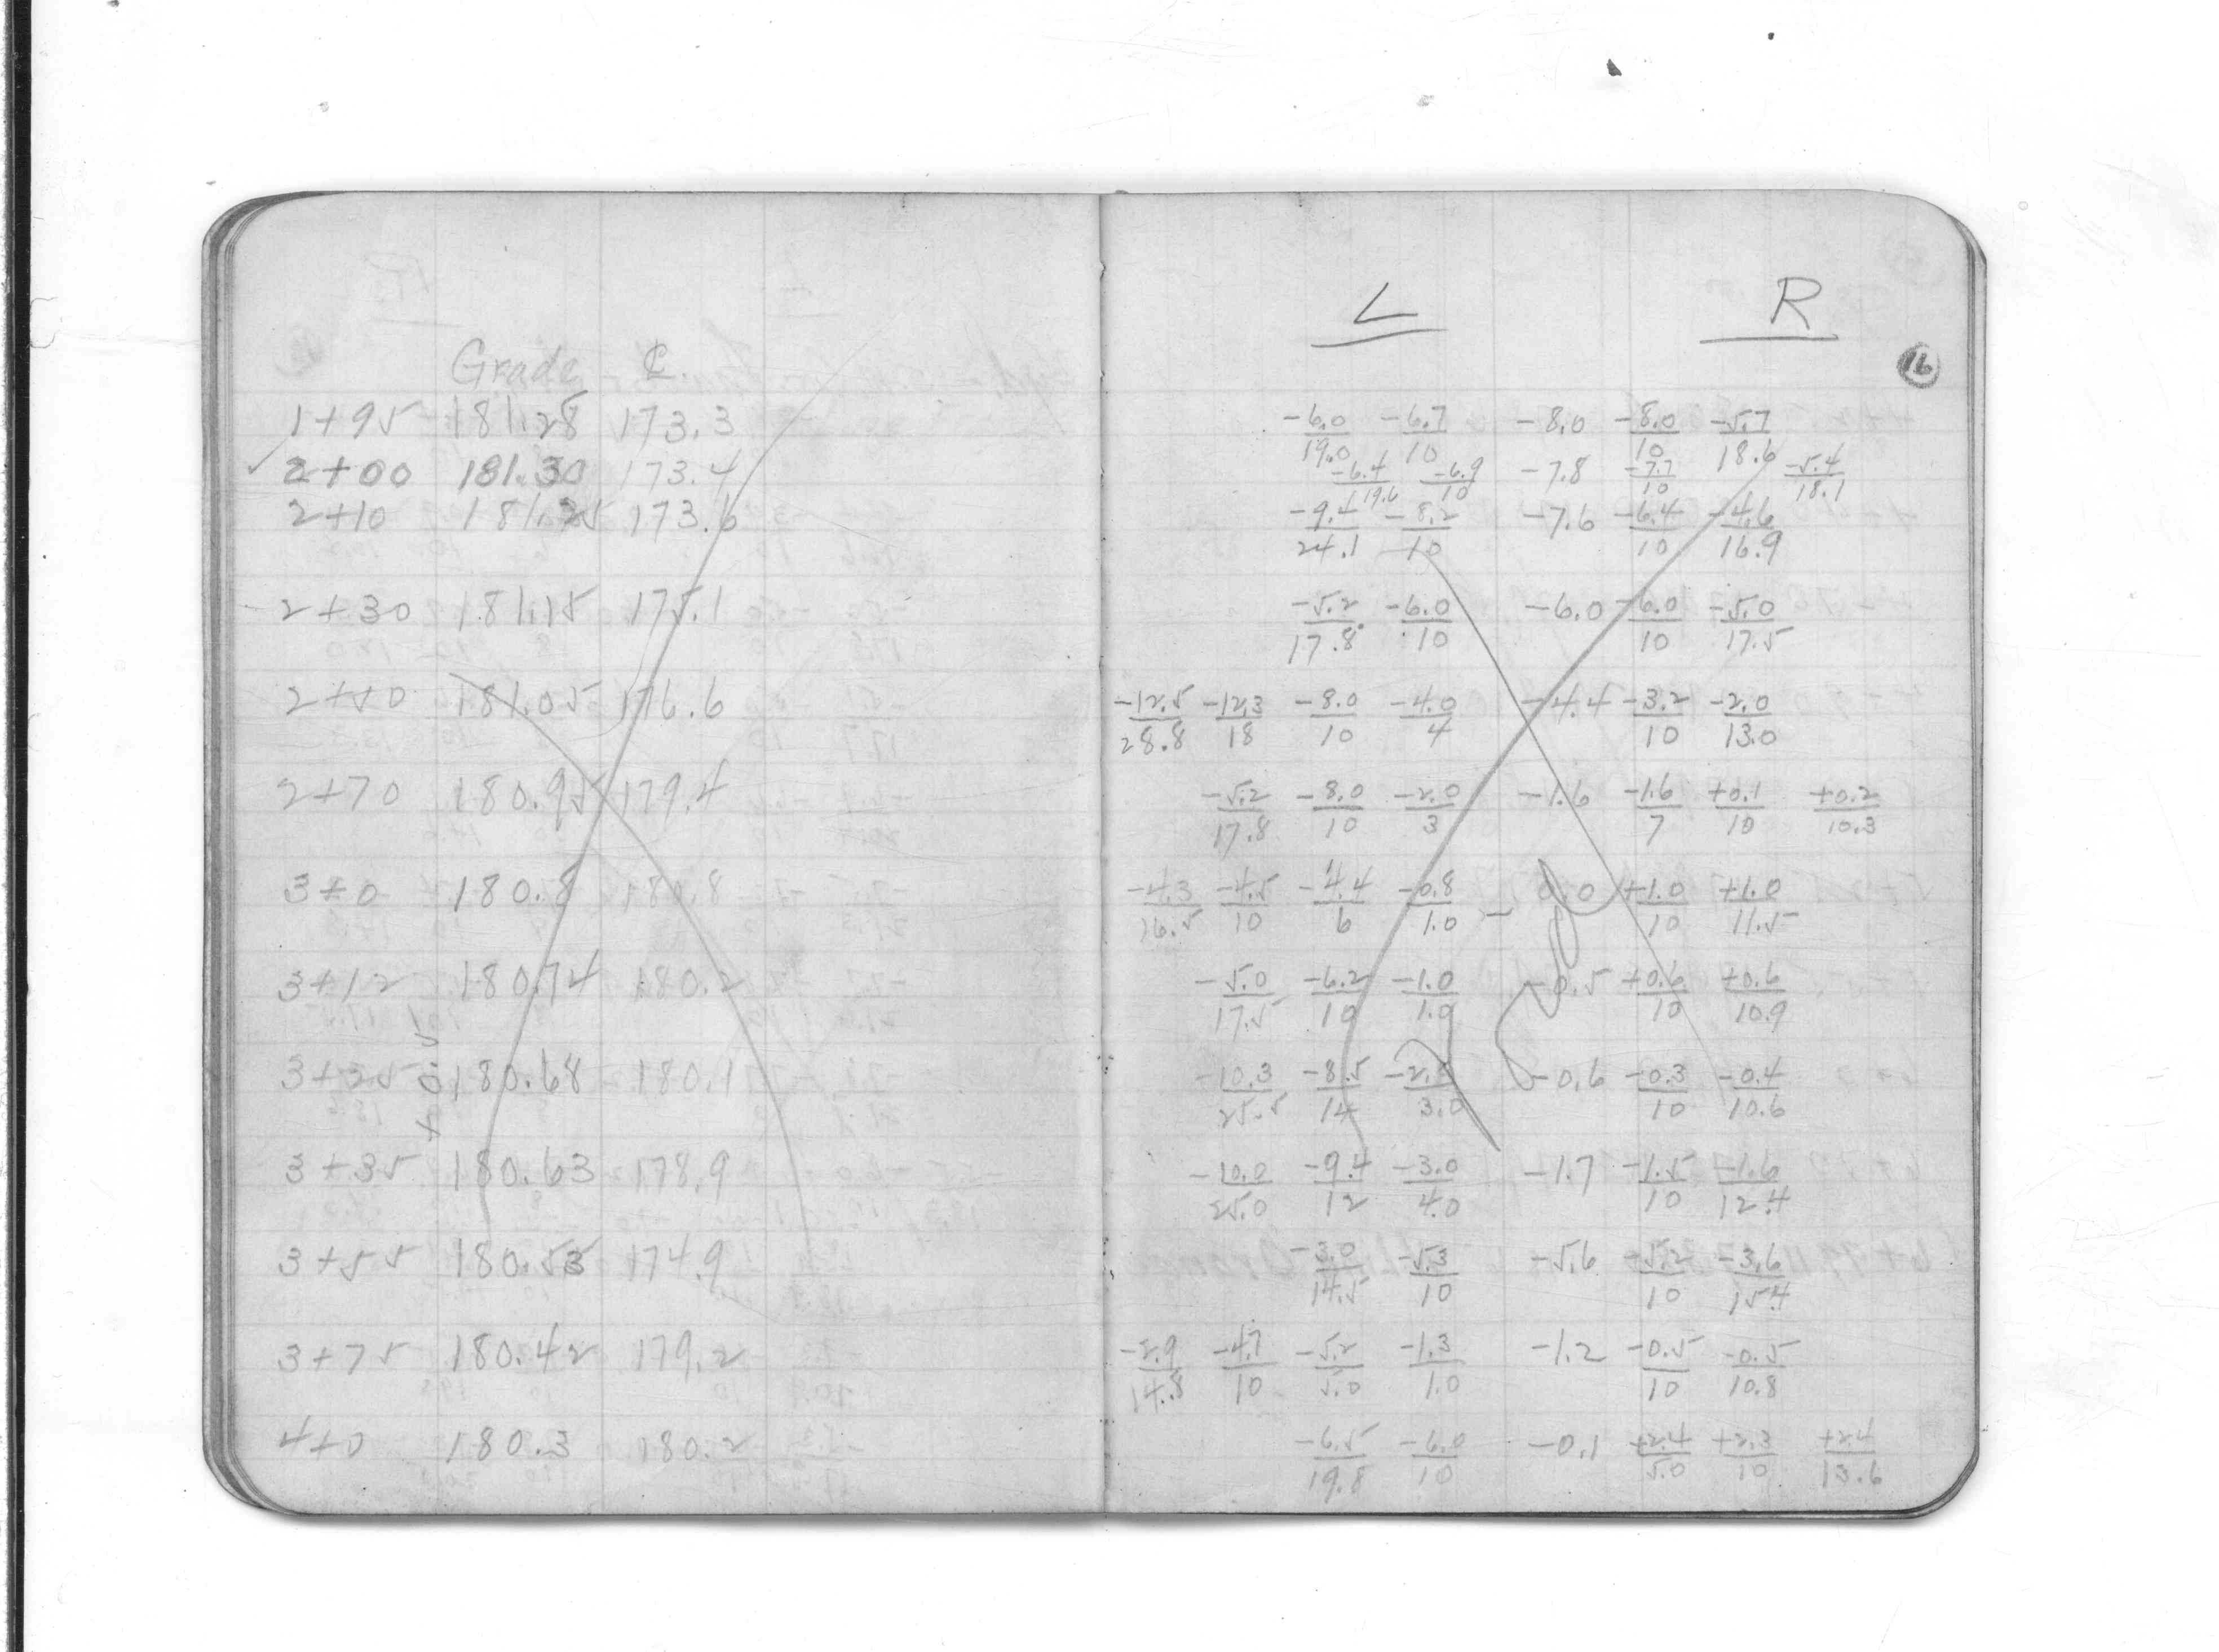 L R
16
Grade ℄
1+95 181.28 173.3 -6.0/19.0 -6.7/10 -8.0 -8.0/10 -5.7/18.6
✓ 2+00 181.30 173.4 -6.4/19.6 -6.9/10 -7.8 -7.7/10 -5.4/18.1
2+10 181.25 173.6 -9.4/24.1 -8.2/10 -7.6 -6.4/10 -4.6/16.9
2+30 181.15 175.1 -5.2/17.8 -6.0/10 -6.0 -6.0/10 -5.0/17.5
2+50 181.05 176.6 -12.5/28.8 -12.3/18 -8.0/10 -4.0/4 -4.4 -3.2/10 -2.0/13.0
2+70 180.95 179.4 -5.2/17.8 -8.0/10 -2.0/3 -1.6 -1.6/7 +0.1/10 +0.2/10.3
3+0 180.8 180.8 -4.3/16.5 -4.5/10 -4.4/6 -0.8/1.0 0.0 +1.0/10 +1.0/11.5
3+12 180.74 180.2 -5.0/17.5 -6.2/10 -1.0/1.0 -0.5 +0.6/10 +0.6/10.9
3+25 180.68 180.1 -10.3/25.5 -8.5/14 -2.0/3.0 -0.6 -0.3/10 -0.4/10.6
3+35 180.63 178.9 -10.0/25.0 -9.4/12 -3.0/4.0 -1.7 -1.5/10 -1.6/12.4
3+55 180.53 174.9 -3.0/14.5 -5.3/10 -5.6 -5.2/10 -3.6/15.4
3+75 180.42 179.2 -2.9/14.8 -4.7/10 -5.2/5.0 -1.3/1.0 -1.2 -0.5/10 -0.5/10.8
4+0 180.3 180.2 -6.5/19.8 -6.0/10 -0.1 +2.4/5.0 +2.3/10 +2.4/13.6